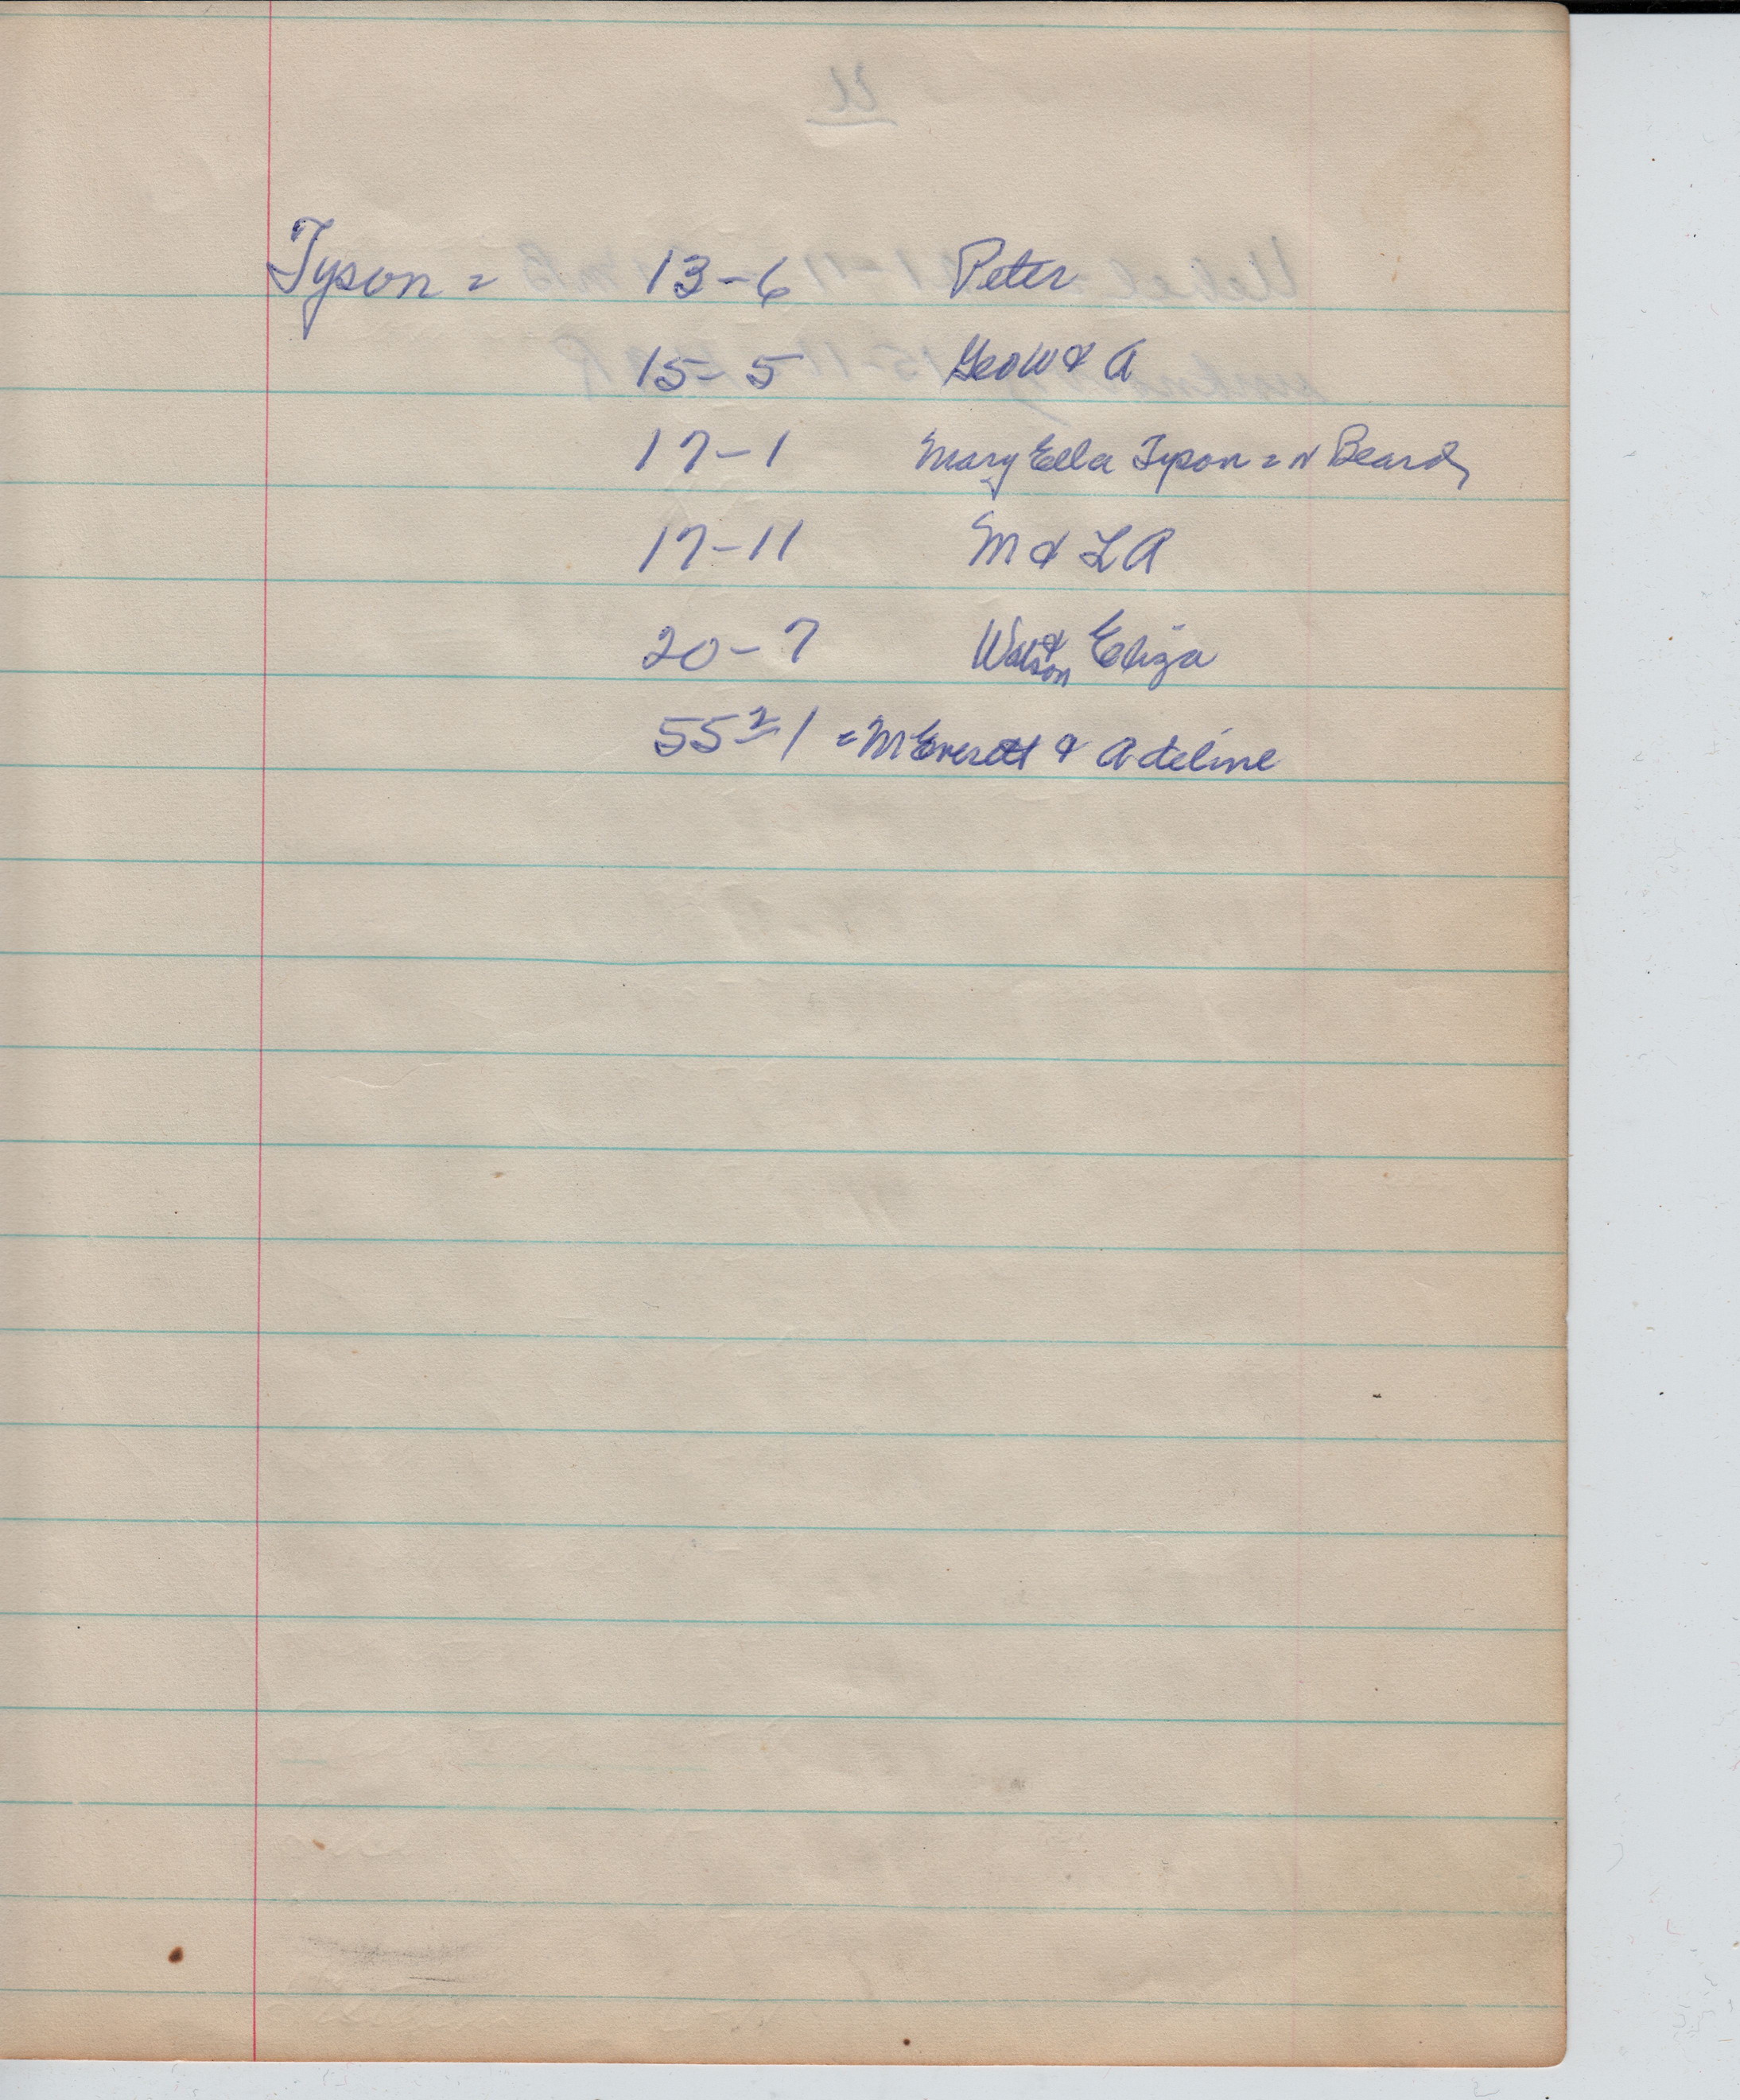 Tyson = 13-6 Peter
15-5 Geo W & A
17-1 Mary Ella Tyson = N Beard
17-11 M & L A
20-7 Watson & Eliza
55 2/1 = M Everett & Adeline